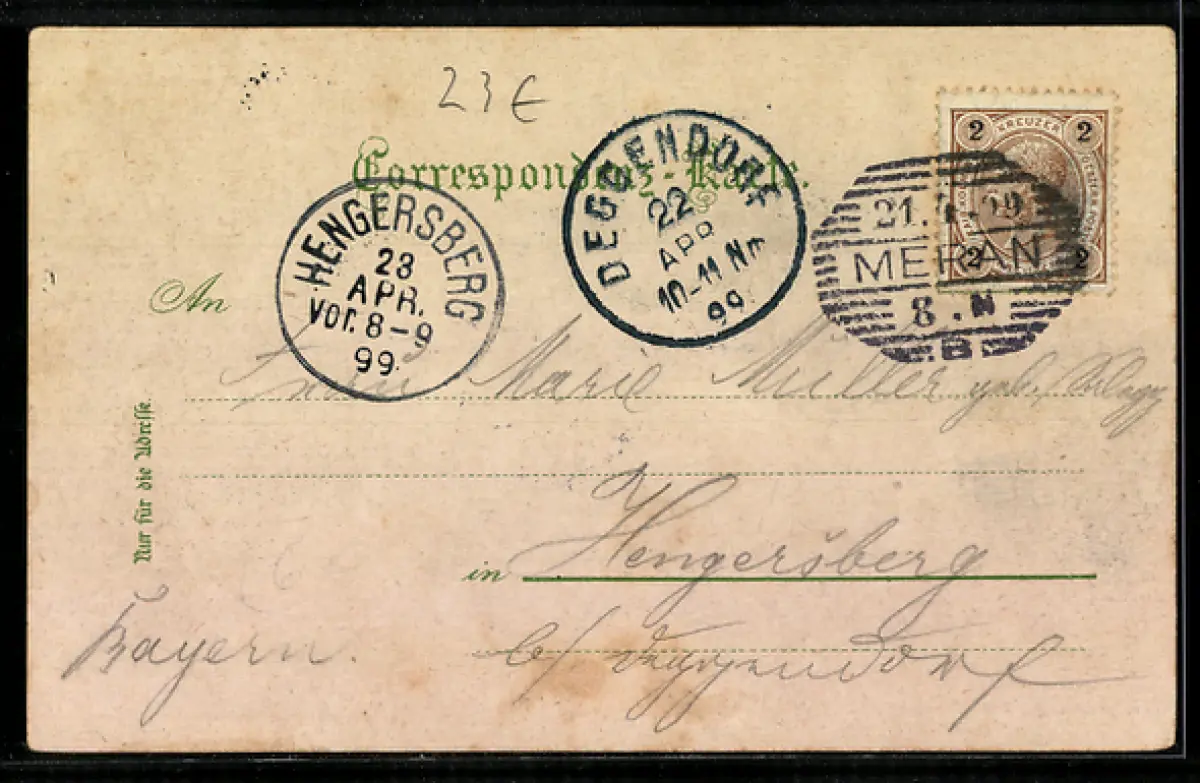 23 €
Correspondenz-Karte.
2 KREUZER 2
2 2
DEGGENDORF
22
APR
10-11 Nm
99
21. 99
MERAN
8. N
HENGERSBERG
23
APR.
vor. 8-9
99
An
Frau Marie Müller geb.
Nur für die Adresse.
in Hengersberg
Bayern. b/ Deggendorf